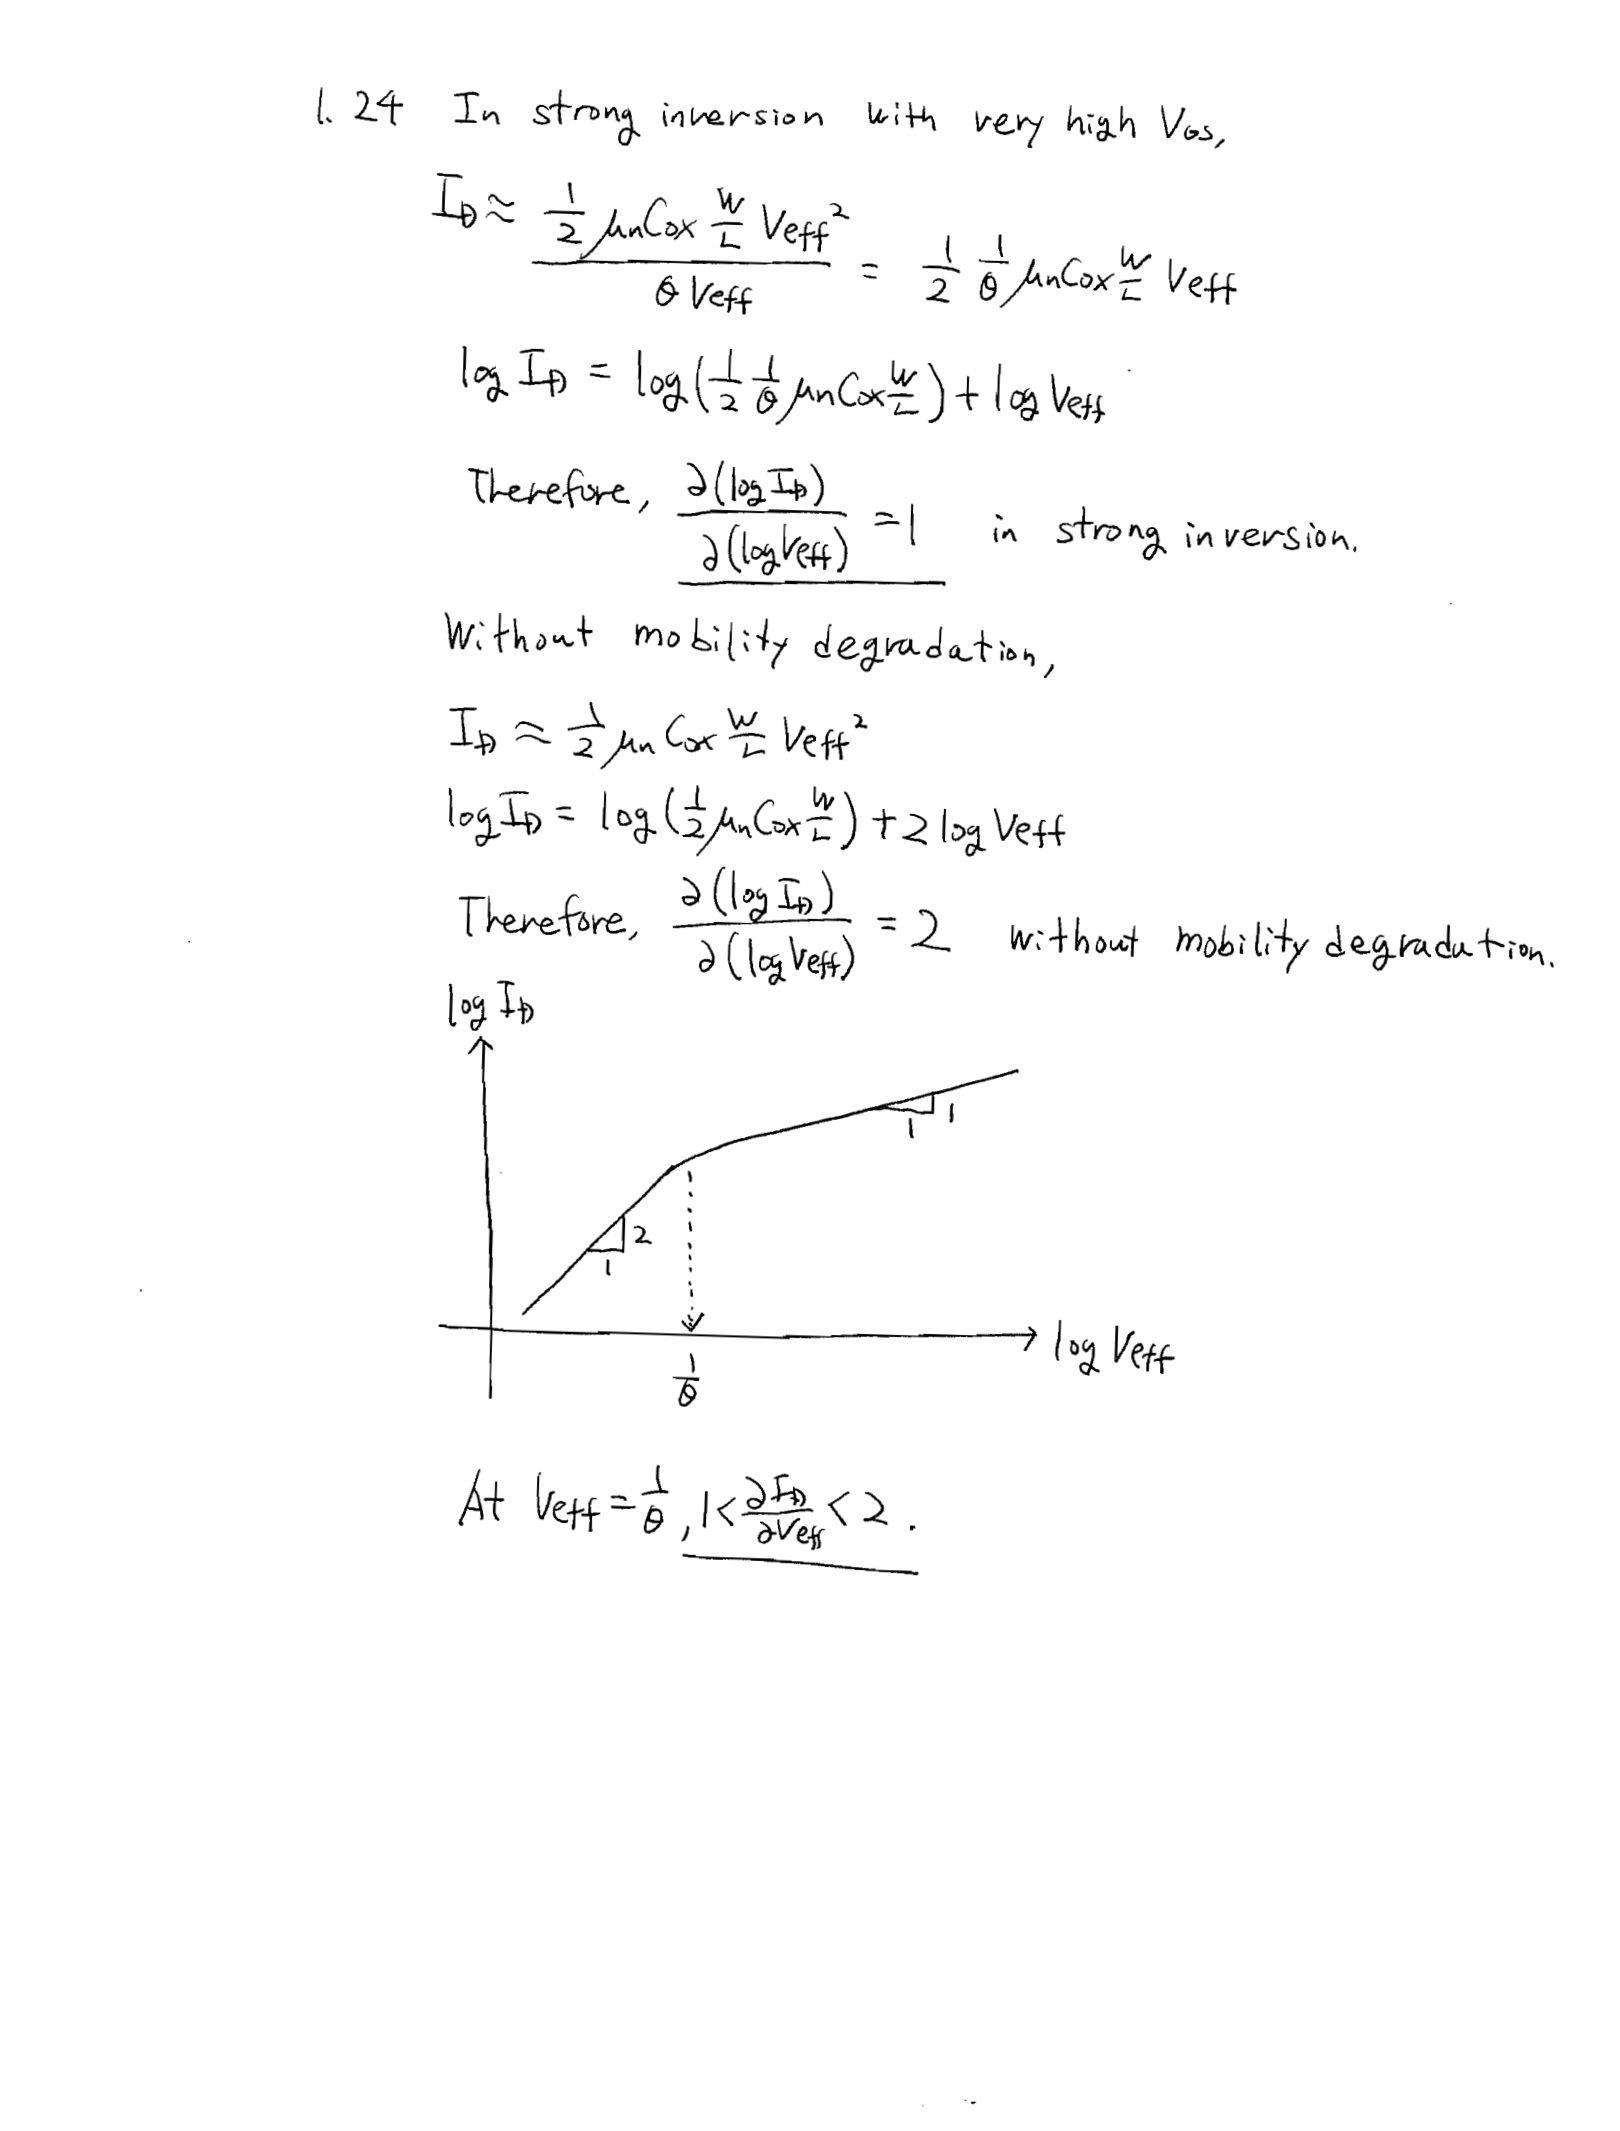 1.24 In strong inversion with very high VGS,
ID ≈ (1/2 μnCox W/L Veff²)/(θ Veff) = 1/2 1/θ μnCox W/L Veff
log ID = log(1/2 1/θ μnCox W/L) + log Veff
Therefore, ∂(log ID)/∂(log Veff) = 1 in strong inversion.
Without mobility degradation,
ID ≈ 1/2 μn Cox W/L Veff²
log ID = log(1/2 μnCox W/L) + 2 log Veff
Therefore, ∂(log ID)/∂(log Veff) = 2 without mobility degradation.
log ID
1
1
2
1
log Veff
1/θ
At Veff = 1/θ, 1 < ∂ID/∂Veff < 2.